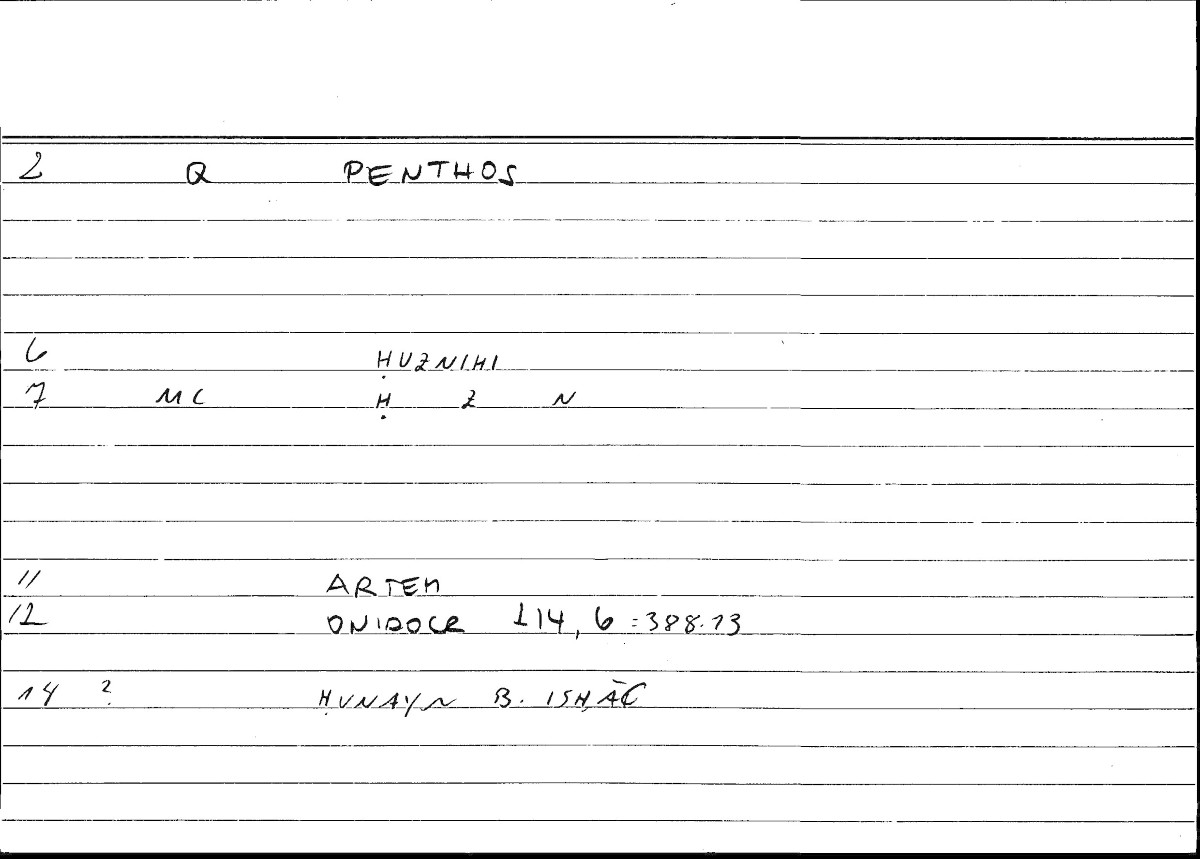 2 Q PENTHOS
6 ḤUZNIHI
7 MC Ḥ Z N
11 ARTEM
12 ONIDOCR 114, 6 = 388.13
14 ? ḤUNAYN B. ISḤĀC